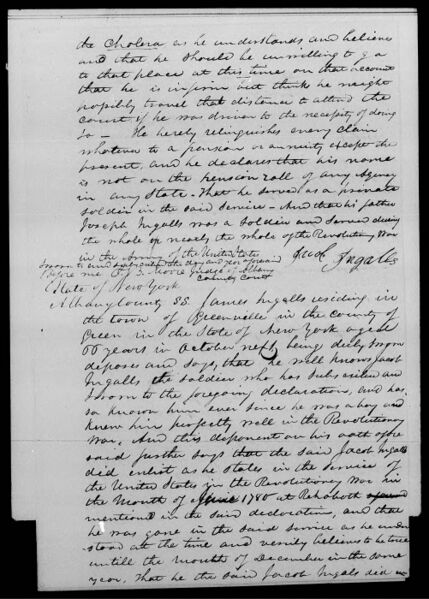 the Cholera as he understands and believes
and that he should be unwilling to go
to that place at this time on that account
that he is infirm but think he might
possibly travel that distance to attend the
court if he was driven to the necessity of doing
so — He hereby relinquishes every claim
whatever to a pension or annuity except the
present, and he declares that his name
is not on the pension roll of any Agency
in any State. That he served as a private
soldier in the said service — And that his father
Joseph Ingalls was a soldier and served during
the whole or nearly the whole of the Revolutionary War
in the Army of the United States
Jacob Ingalls
Sworn to and subscribed the day and year aforesaid
before me Judge of Albany
County Court
State of New York
Albany County SS. James Ingalls residing in
the town of Greenville in the county of
Green in the State of New York aged
66 years in October next, being duly sworn
deposes and says, that he well knows Jacob
Ingalls the soldier who has subscribed and
sworn to the foregoing declaration, and has
so known him ever since he was a boy and
knew him perfectly well in the Revolutionary
War. And this deponent on his oath afore
said further says that the said Jacob Ingalls
did enlist as he states in the service of
the United States in the Revolutionary War in
the Month of June 1780 at Rehoboth
mentioned in the said declaration, and that
he was gone in the said service as he under
stood at the time and verily believes to be true
untill the month of December in the same
year, that he the said Jacob Ingals did